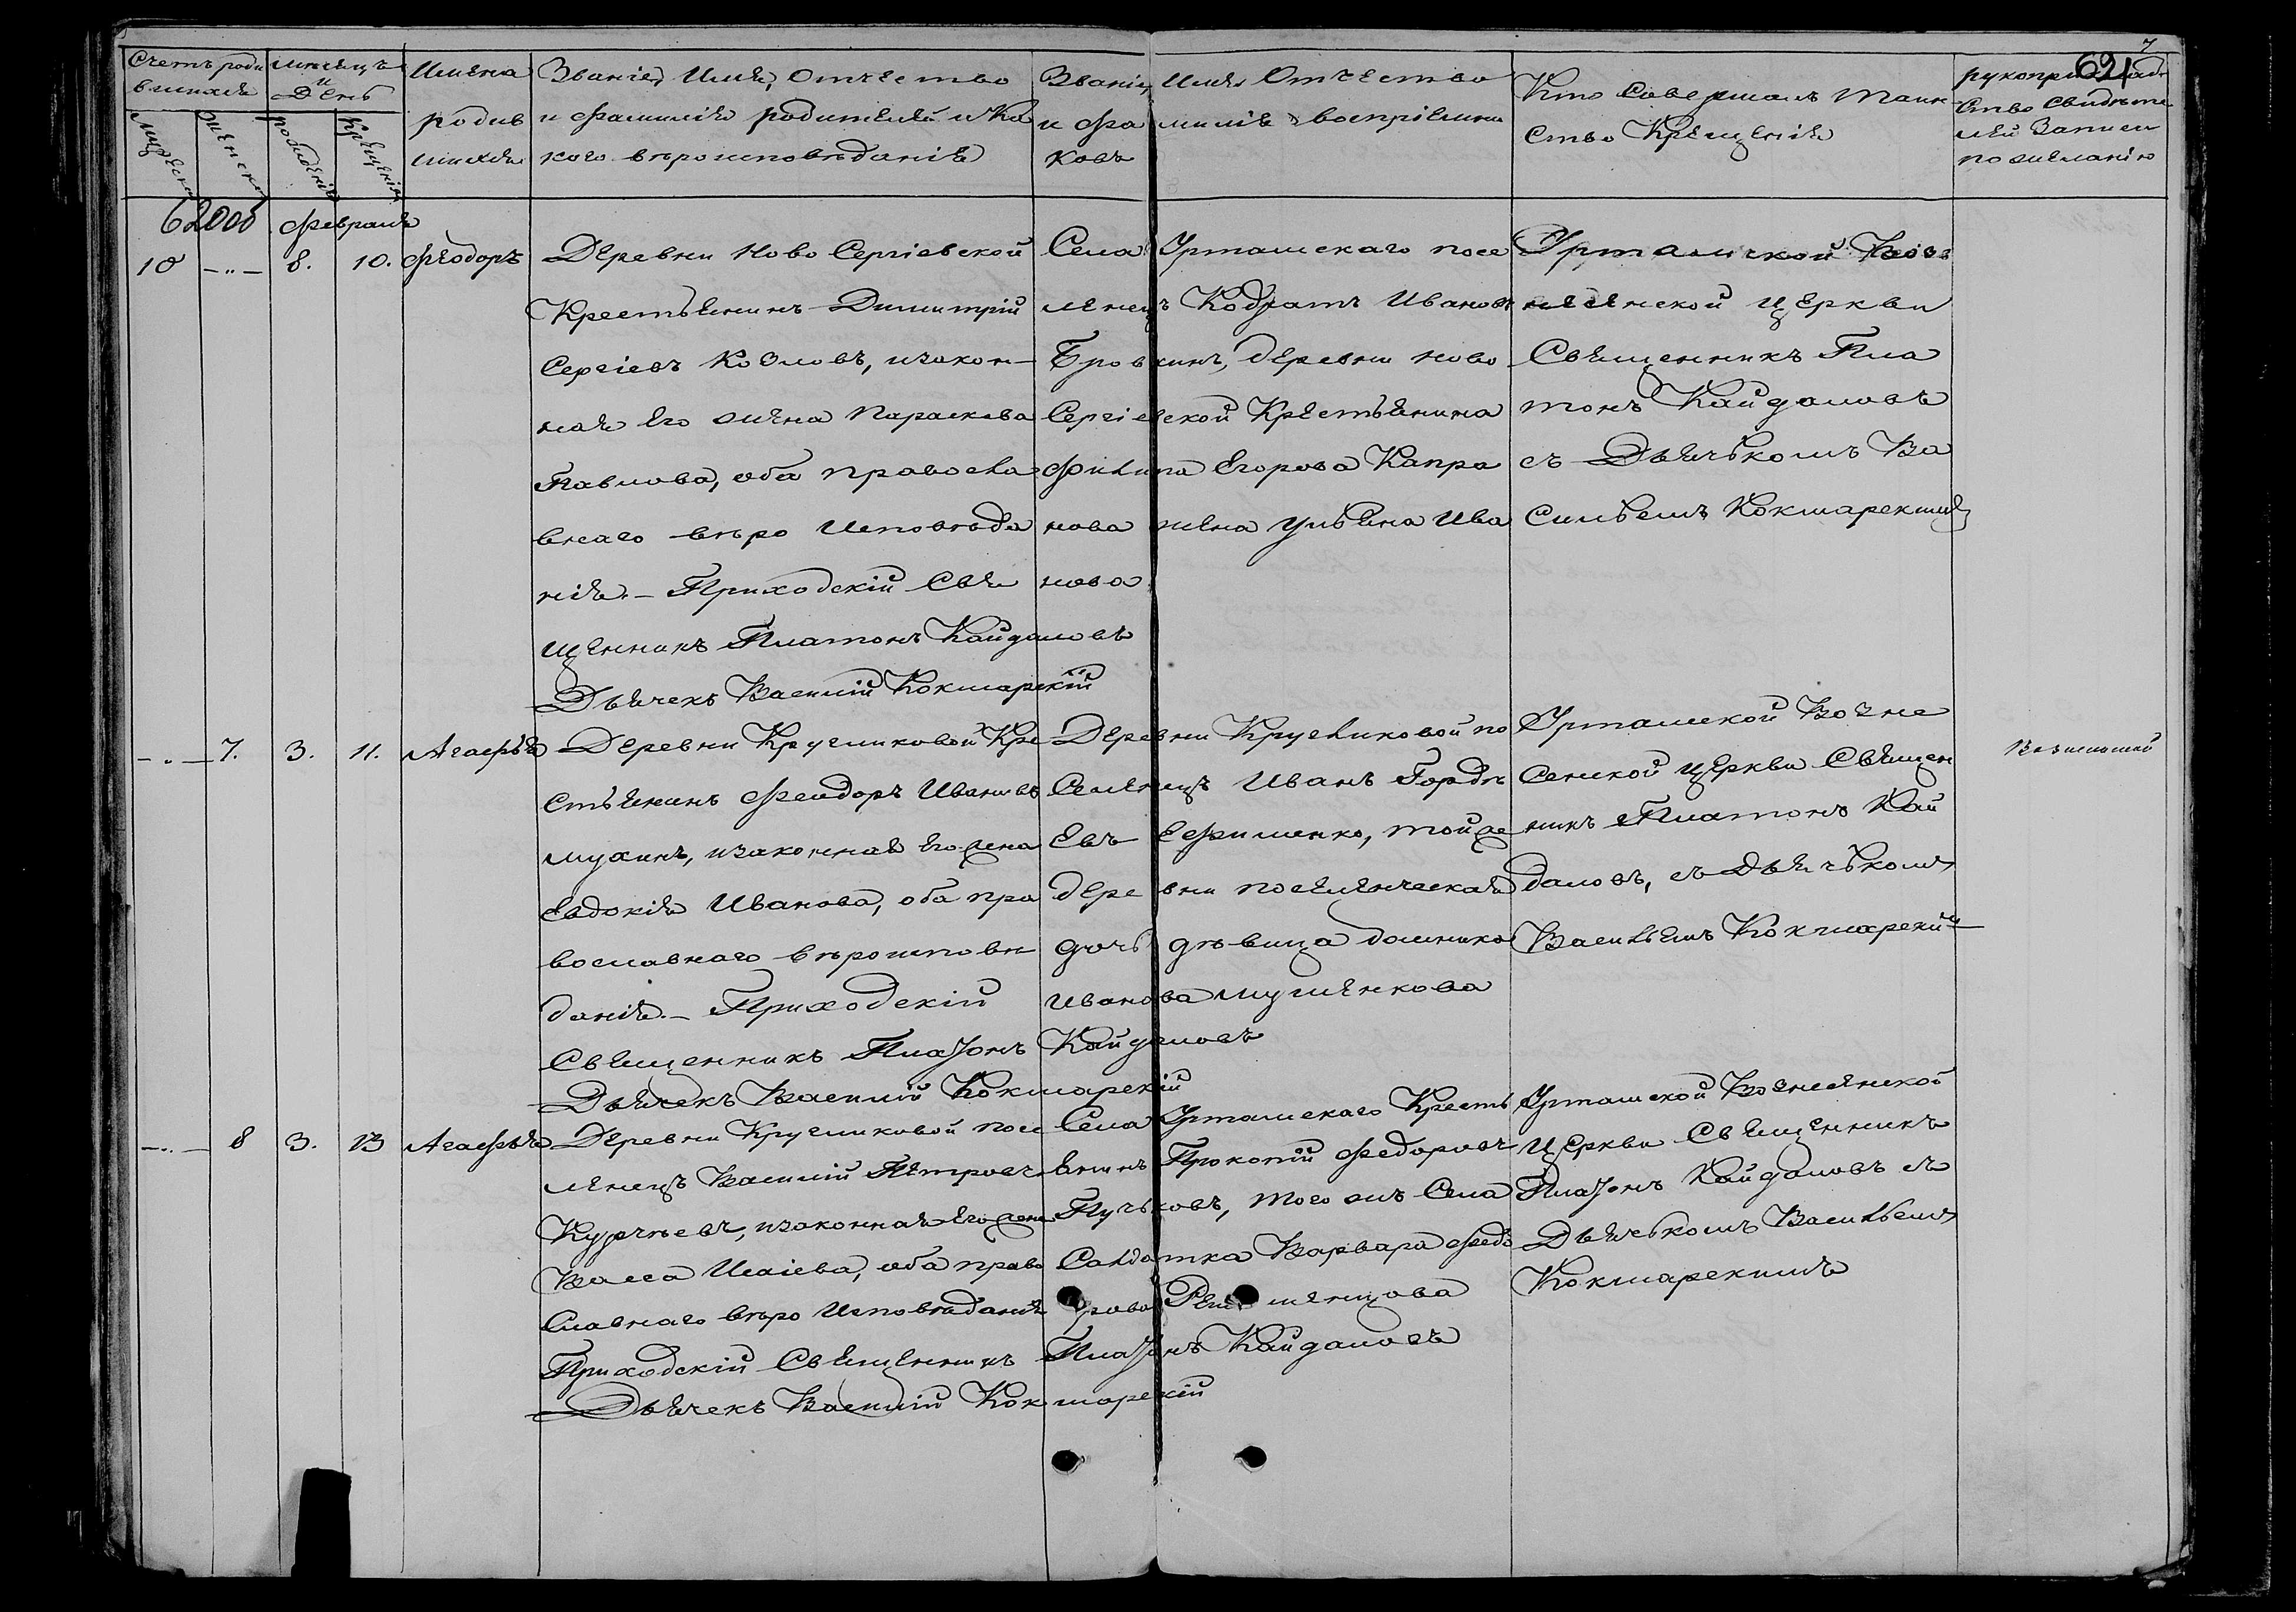 7
621
Счетъ роди
вшихся
Мѣсяцъ
и
День
Имена
родив
шихся
Званіе, Имя, Отчество
и фамилія родителей и Ка
кого вѣроисповѣданія
Званіе, Имя Отчество
и фа миліе воспріемни
ковъ
Кто Совершалъ Таин
ство Крещенія
рукоприклад
ство Свидѣте
лей Записи
по желанію
Мужеска
Женска
рожденія
Крещенія
Февраля
10 -"- 8. 10. Феодоръ
Деревни Ново Сергіевской
Крестьянинъ Димитрій
Сергіевъ Козловъ, изакон-
ная Его жена Параскева
Павлова, оба православ
внаго вѣро Исповѣда
нія.- Приходскій Свя
щенникъ Платонъ Кайдаловъ
Дьячекъ Василій Кокшарскій
Села Урташскаго посе
ленецъ Кодратъ Ивановъ
Бровкинъ, деревни ново
Сергіевской Крестьянина
Филипа Егорова Капра
нова жена Ульяна Ива
нова
Урташской Возн
есенской Церкви
Священникъ Пла
тонъ Кайдаловъ
съ Дьячькомъ Ва
сильемъ Кокшарскимъ
-"- 7. 3. 11. Агафья
Деревни Кругликовой Кре
стьянинъ Феидоръ Ивановъ
Мухинъ, изаконная Его жена
Евдокія Иванова, оба пра
вославнаго вѣроисповѣ
данія.- Приходскій
Священникъ Платонъ Кайдаловъ
Дьячекъ Василій Кокшарскій
Деревни Кругликовой по
Селенецъ Иванъ Гордѣ
Евъ Ефименко, той же
деревни поселенческая
дочь дѣвица домника
Иванова Мушенкова
Урташской Возне
Сенской Церкви Священ
никъ Платонъ Кай
даловъ, съ Дьячькомъ
Васильемъ Кокшарскимъ
-"- 8 3. 13 Агафья
Деревни Кругликовой посе
ленецъ Василій Петровъ
изаконная Его жена
Васса Исаіева, оба право
Славнаго вѣро Исповѣданія
Приходскій Священникъ Платонъ Кайдаловъ
Дьячекъ Василій Кокшарскій
Села Урташскаго Кресть
Янинъ Прокопій Федоровъ
Пучьковъ, того жъ Села
Салдатка Варвара Федо
рова
Урташской Вознесенской
Церкви Священникъ
Платонъ Кайдаловъ съ
Дьячькомъ Васильемъ
Кокшарскимъ